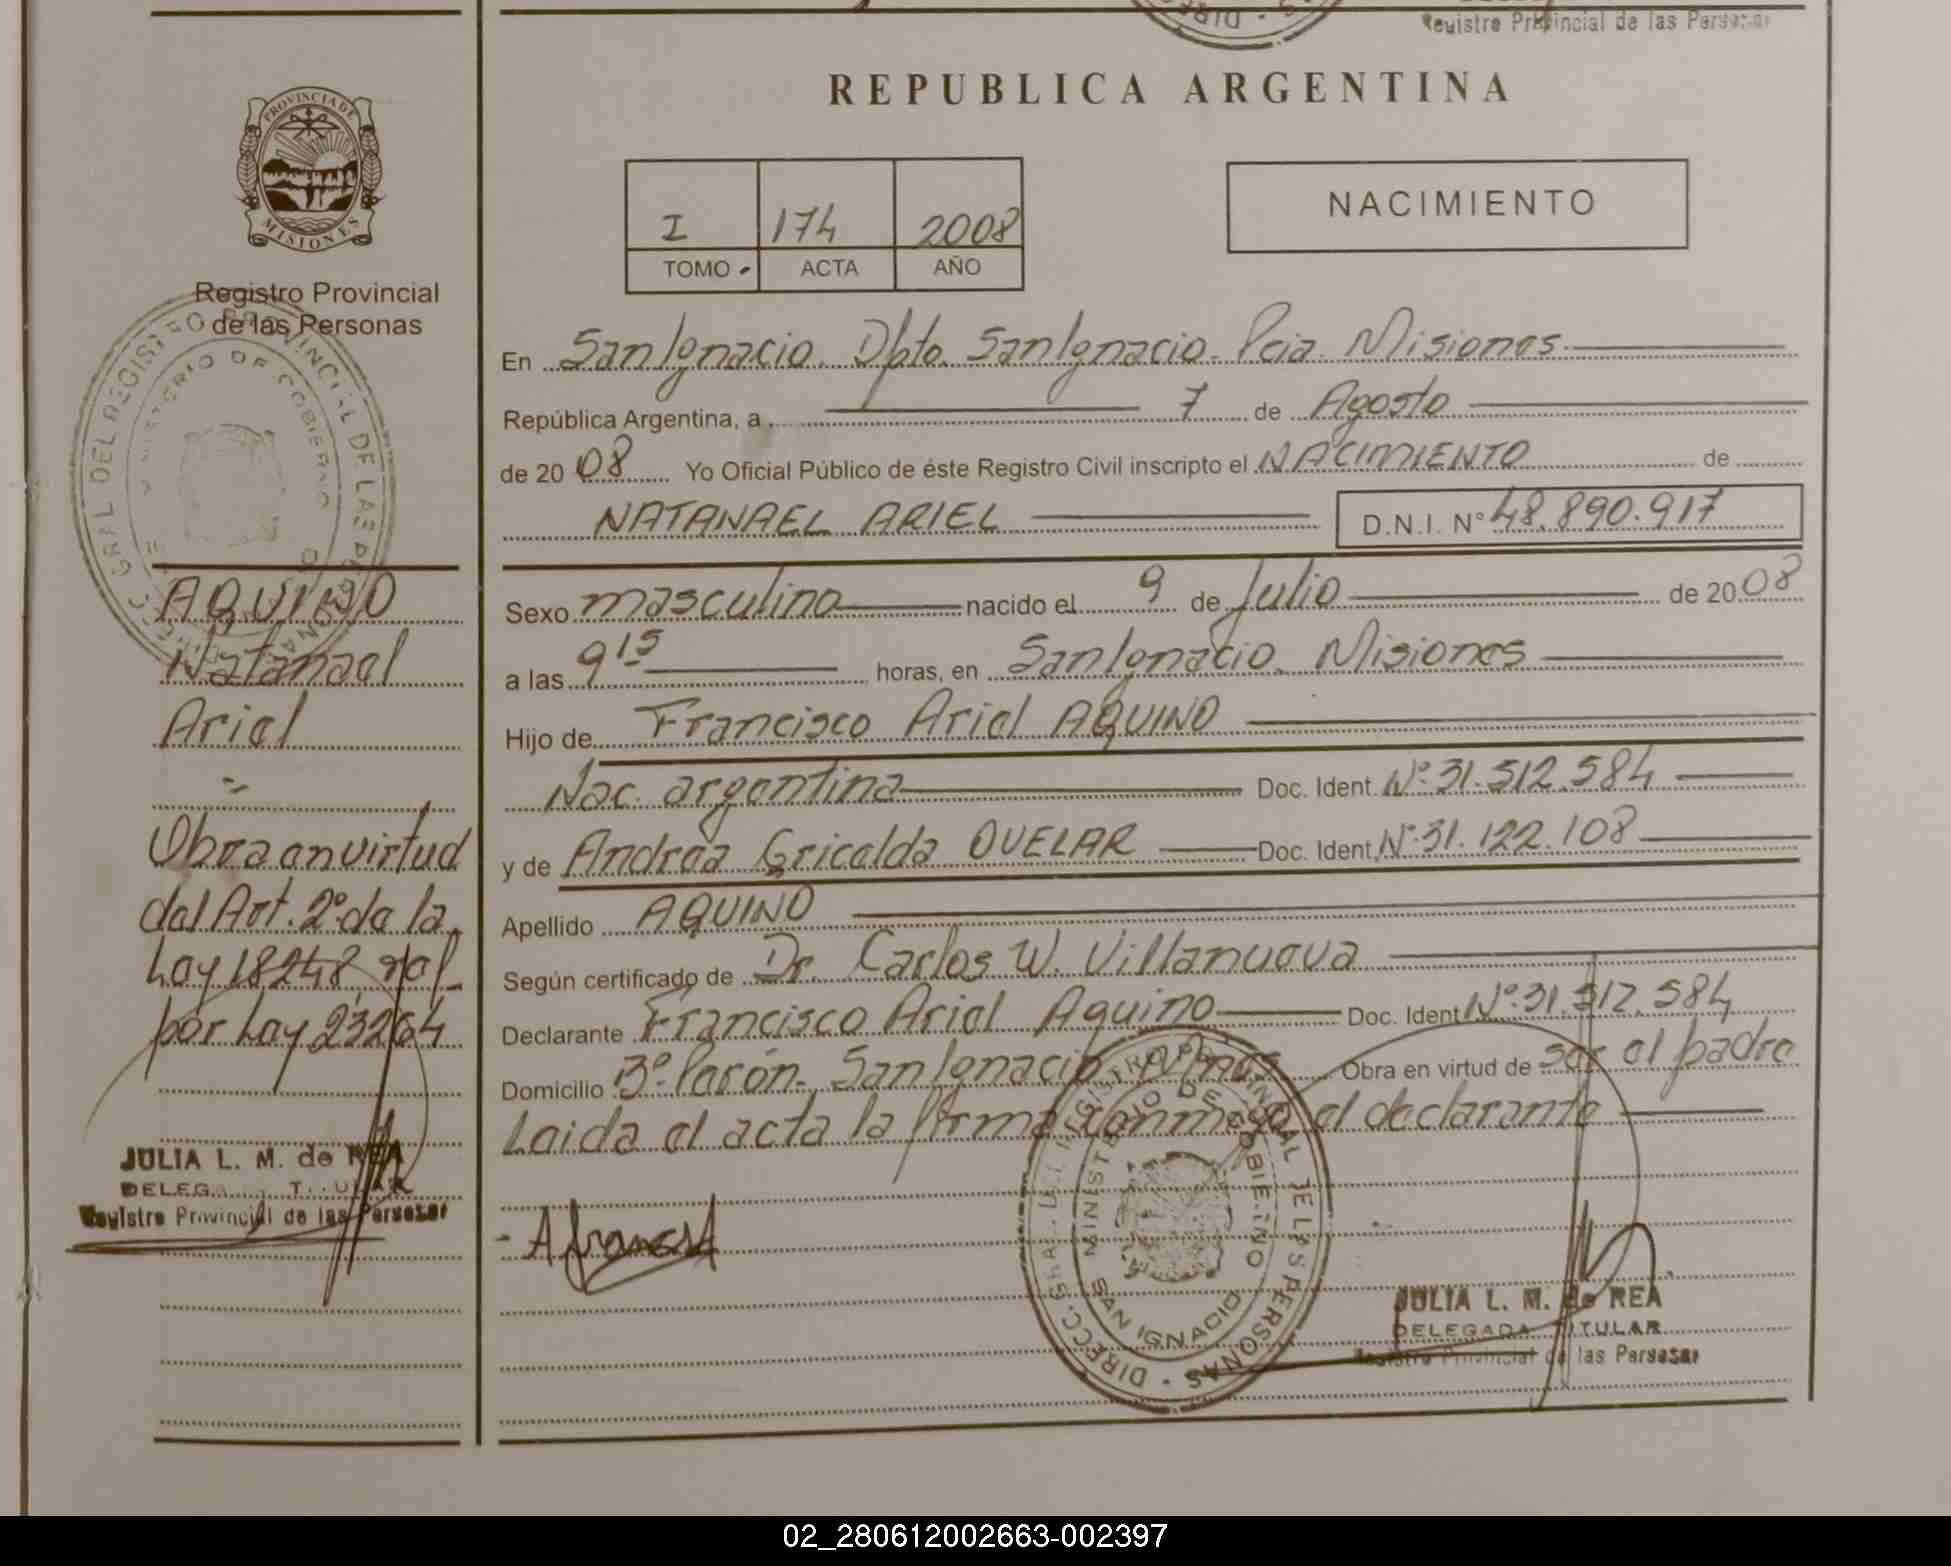 Registre Provincial de las Personas
REPUBLICA ARGENTINA
PROVINCIA DE
MISIONES
Registro Provincial
de las Personas
I 174 2008
TOMO ACTA AÑO
NACIMIENTO
En San Ignacio. Dpto. San Ignacio. Pcia. Misiones
República Argentina, a 7 de Agosto
de 20 08 Yo Oficial Público de éste Registro Civil inscripto el NACIMIENTO de
NATANAEL ARIEL D.N.I. N° 48.890.917
Sexo masculino nacido el 9 de Julio de 20 08
a las 9 15 horas, en San Ignacio. Misiones
Hijo de Francisco Ariel AQUINO
Nac. argentina Doc. Ident. N° 31.512.584
y de Andrea Gricelda OVELAR Doc. Ident. N° 31.122.108
Apellido AQUINO
Según certificado de Dr. Carlos W. Villanueva
Declarante Francisco Ariel Aquino Doc. Ident. N° 31.512.584
Domicilio 3° Parón. San Ignacio Obra en virtud de ser el padre
Leida el acta la firma conmigo el declarante
AQUINO
Natanael
Ariel
Obra en virtud
del Art. 2° de la
Ley 18248, ref
por Ley 23264
JULIA L. M. de REA
DELEGADA TITULAR
Registre Provincial de las Personas
DIRECC. GRAL. DEL REGISTRO PROVINCIAL DE LAS PERSONAS
MINISTERIO DE GOBIERNO
SAN IGNACIO
JULIA L. M. de REA
DELEGADA TITULAR
Registre Provincial de las Personas
02_280612002663-002397